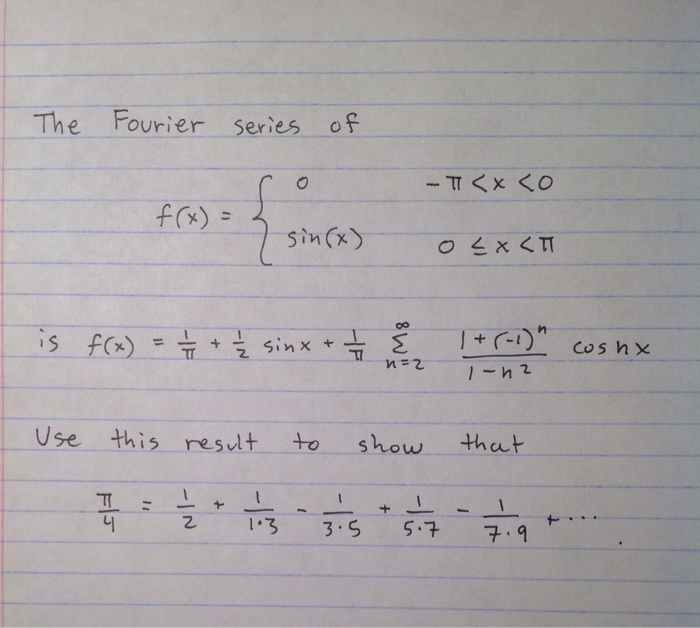 The Fourier series of
f(x) = { 0    -π < x < 0
sin(x)    0 ≤ x < π
is f(x) = 1/π + 1/2 sin x + 1/π ∞ Σ n=2 (1 + (-1)^n)/(1 - n^2) cos nx
Use this result to show that
π/4 = 1/2 + 1/(1·3) - 1/(3·5) + 1/(5·7) - 1/(7·9) + ··· .